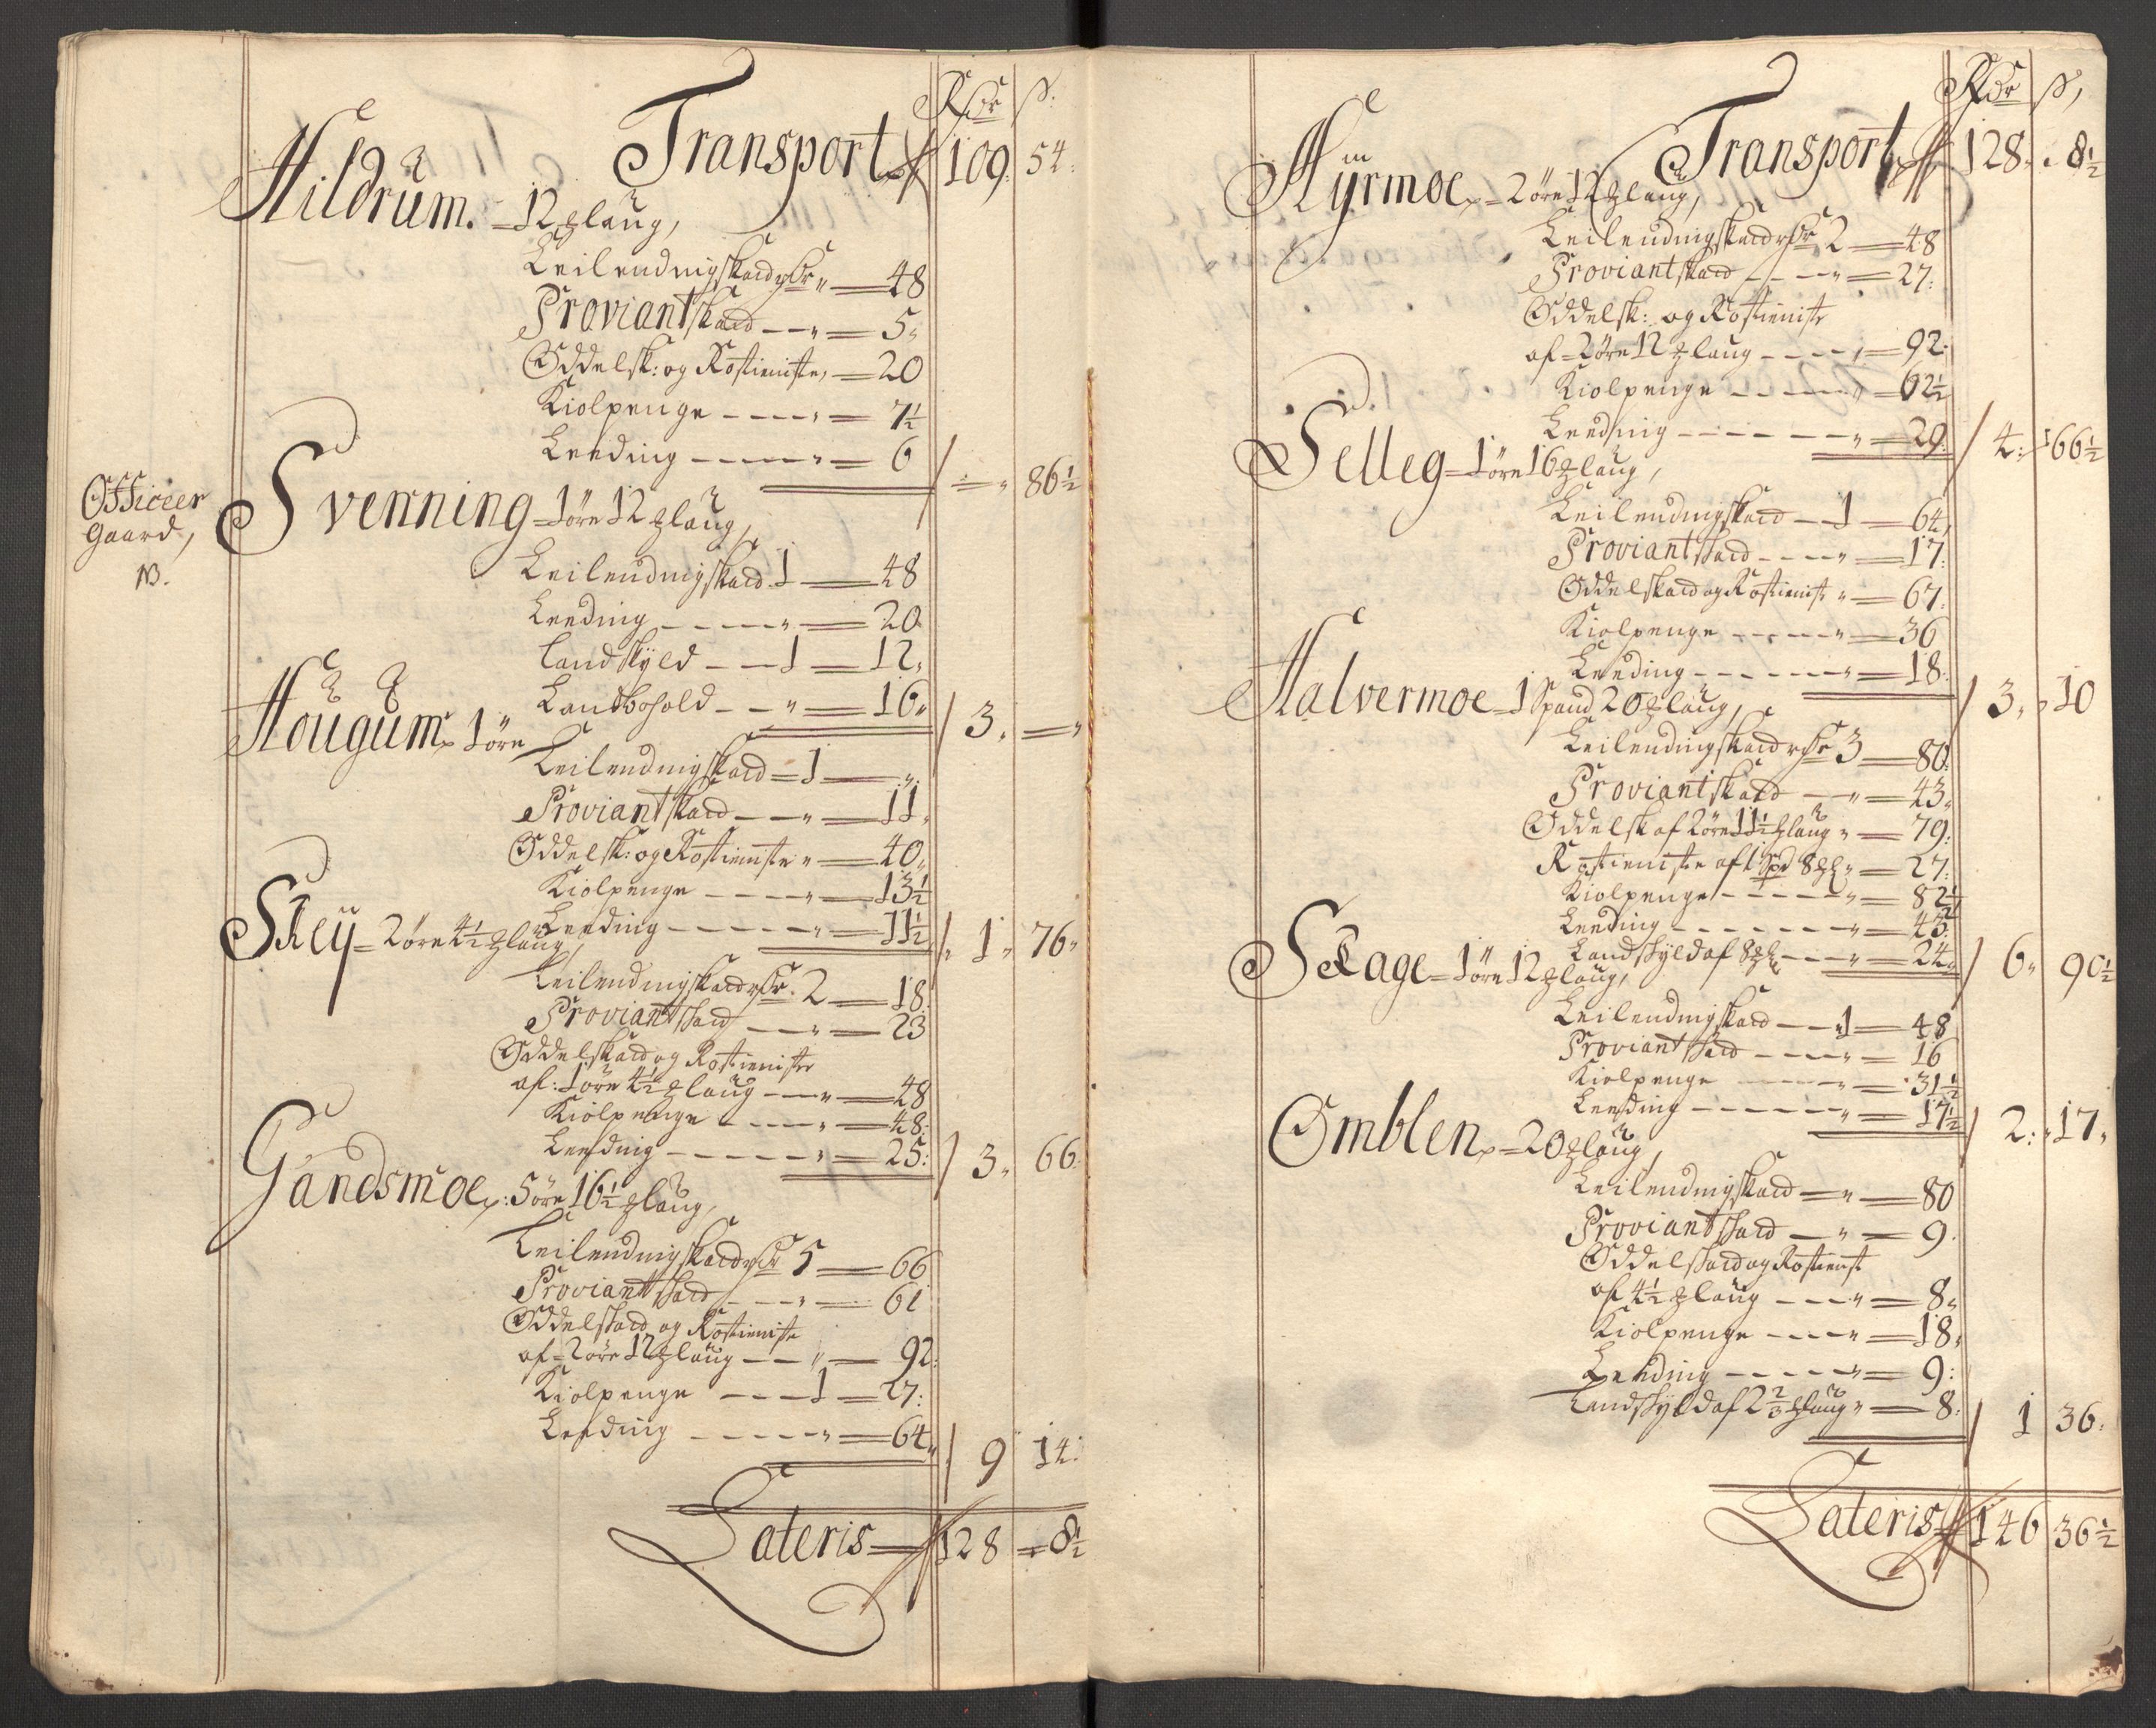 Rdr ß.
Transport 109. 54.
Hildrum. = 12 ℔ laug,
Leilendingskatt Rdr „ — 48
Proviantskatt — „ — 5„
Oddelsk: og Rostieniste, — 20
Kiolpenge - - - - „ = 7½
Leeding - - - - „ = 6
/ = „ 86½
Officeer
Gaard,
NB.
Svenning = 1 öre 12 ℔ laug,
Leilendingskatt 1 — 48
Leeding - - - - „ — 20
Landskyld - - 1 — 12„
Landbohold - - „ — 16„
/ 3. = „
Hougum, 1 öre
Leilendingskatt = 1 — „
Proviantskatt - - „ — 11„
Oddelsk: og Rostieniste „ — 40„
Kiolpenge - - - - „ — 13½
Leeding - - - - - „ — 11½
/ 1„ 76„
Skey = 2 öre 4½ ℔ laug,
Leilendingskatt Rdr. 2 — 18.
Proviantskatt - - „ — 23
Oddelskatt og Rostieniste
af: 1 öre 4½ ℔ laug - - „ — 48
Kiolpenge - - - - „ — 48:
Leeding - - - - - „ = 25:
/ 3„ 66.
Gandsmoe, : 5 öre 16½ ℔ laug,
Leilendingskatt Rdr 5 — 66
Proviantskatt - - - „ — 61
Oddelskatt og Rostieniste
af = 2 öre 12 ℔ laug - - „ — 92:
Kiolpenge - - - 1 — 27:
Leeding - - - - - „ — 64„
/ 9 14:
Lateris — 128 = 8½
Rdr ß,
Transport 128. „ 8½
Hyrmoe, = 2 öre 12 ℔ laug,
Leilendingskatt Rdr 2 — 48
Proviantskatt - - - „ — 27:
Oddelsk: og Rostieniste
af = 2 öre 12 ℔ laug - - - „ — 92:
Kiolpenge - - - - - „ — 62½
Leeding - - - - - - „ — 29:
/ 4: 66½
Selleg = 1 öre 16 ℔ laug,
Leilendingskatt — 1 — 64,
Proviantskatt - - - - „ — 17:
Oddelskatt og Rostienist „ — 67:
Kiolpenge - - - - - „ — 36
Leeding - - - - - - „ — 18:
/ 3„ 10
Halvermoe = 1 Spand 20 ℔ laug,
Leilendingskatt Rdr 3 — 80:
Proviantskatt — „ — 43„
Oddelsk af 2 öre 11½ ℔ laug „ — 79:
Rostieniste af 1 Spd 8 ℔ „ — 27:
Kiolpenge - - - - - „ — 82½
Leeding - - - - - - - „ — 43:
Landskyld af 8 ℔ - - - „ — 24„
/ 6„ 90½
Skage = 1 öre 12 ℔ laug,
Leilendingskatt - - 1 — 48
Proviantskatt - - - - „ — 16
Kiolpenge - - - - - „ — 31½
Leeding - - - - - - „ — 17½
/ 2: „ 17„
Omblen, = 20 ℔ laug,
Leilendingskatt — „ — 80
Proviantskatt — „ — 9.
Oddelskatt og Rostienist
af 4½ ℔ laug - - - - „ — 8„
Kiolpenge - - - - „ — 18„
Leeding - - - - - „ — 9:
Landskyld af 2⅔ ℔ laug „ — 8:
/ 1 36:
Lateris 146 36½